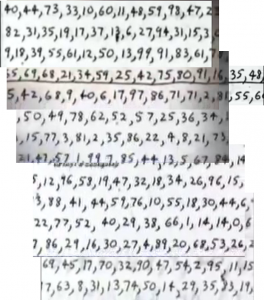 40,44,73,33,10,60,11,48,59,98,47,2
82,31,35,19,17,37,1,6,27,94,31,15,3,
9,18,39,55,61,12,50,13,99,91,83,61,
65,69,68,21,34,59,25,42,75,80,91,16,35,48
5,42,68,9,40,6,17,97,86,71,71,2,81,55,6
,50,49,78,62,52,57,25,36,34,
,15,77,3,81,2,35,86,22,4,8,21,73,
21,47,57,1,99,7,85,44,13,5,67,84,14
5,12,96,58,19,47,32,18,34,26,96,15,
3,88,41,44,59,76,10,55,18,30,44,6,
22,77,52,40,29,38,66,1,14,14,0,6
7,86,29,16,30,27,4,89,20,68,53,26,2
69,45,17,70,32,90,47,54,2,95,11,15
17,63,8,31,13,74,50,14,29,35,83,19,